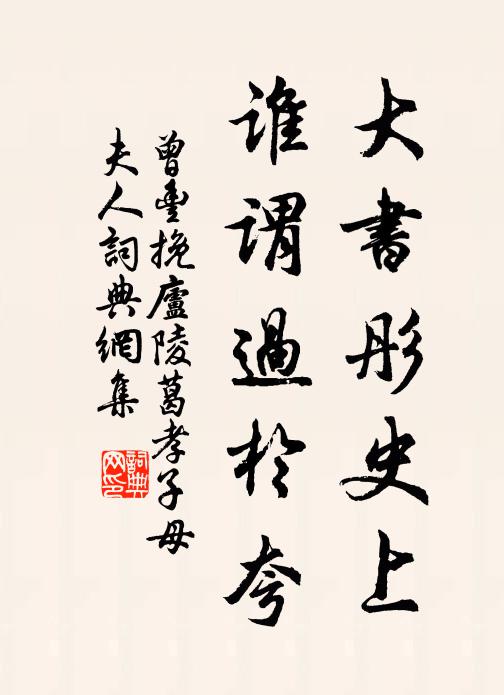 大書彤史上
誰謂過於夸
曾豐挽廬陵葛孝子母
夫人詞典網集
詞典網印